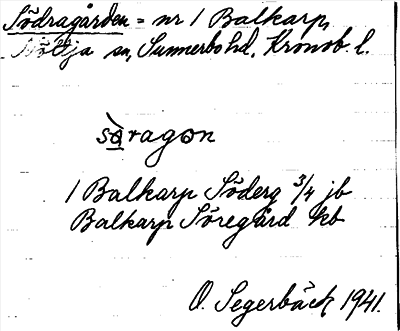 Södragården = nr 1 Balkarp,
Nöttja sn, Sunnerbo hd, Kronob. l.
sòragon
1 Balkarp Söderg 3/4 jb
Balkarp Söregård kb
O. Segerbäck 1941.